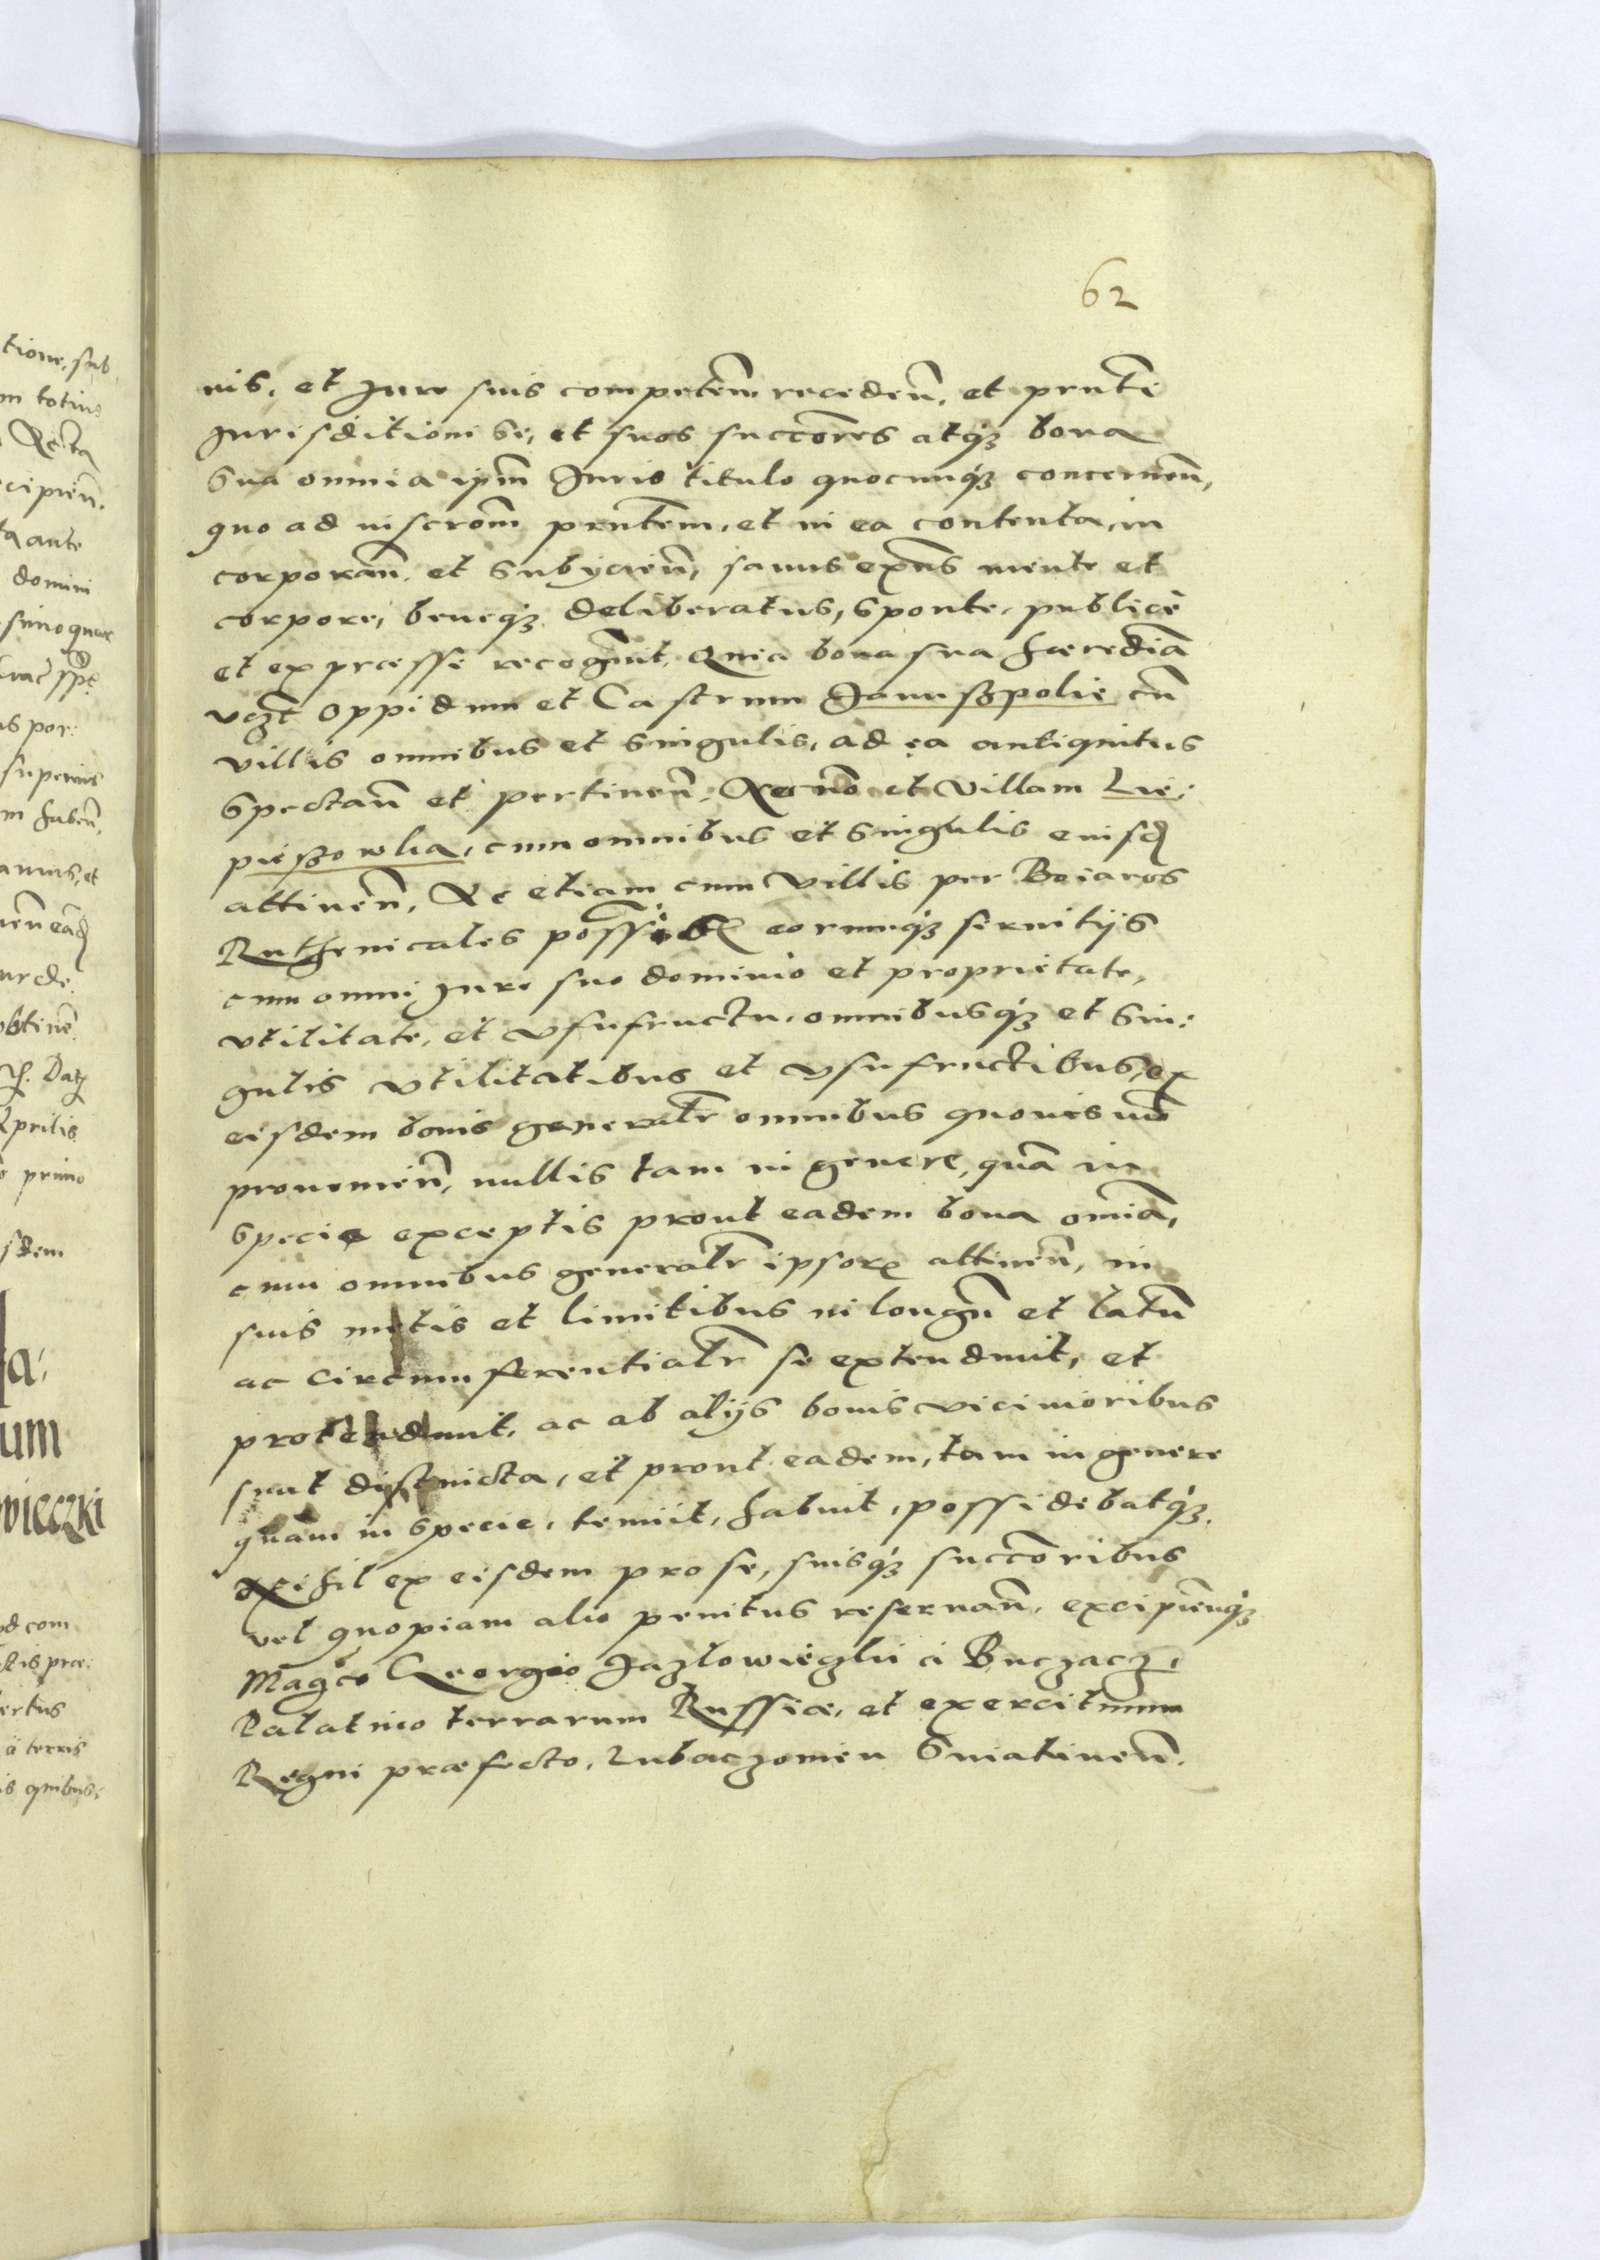 62
nis, et Jure suis competeñ recedeñ, et prnti
Jurisditioni se, et suos succõres atqꝫ bona
Sua omnia ipm̃ Juris titulo quocunqꝫ concerneñ,
quo ad inscrõm prntem, et in ea contenta, in
corporañ et Subÿcieñ, sanus exñs mente et
corpore, beneqꝫ deliberatus, sponte, publicè
et expræsse recognit, Quia bona sua hærediã
vꝫt Oppidum et Castrum Januszpolie cũ
villis omnibus et Singulis, ad ea antiquitus
Spectañ et pertineñ, Nec nõ et Villam Lie:
pieszowka, cum omnibus et Singulis eiusd
attineñ, Ac etiam cum Villis per Boiaros
Ruthenicales eorumqꝫ seruitijs
cum omni Jure suo dominio et proprietate,
vtilitate, et vsufructu, omnibusqꝫ et Sin:
gulis vtilitatibus et vsufructibus, ex
eisdem bonis generalr omnibus quouis mõ
prouenieñ, nullis tam in genere, quã in
Specie exceptis prout eadem bona omiã,
cum omnibus generalr ipsorꝫ attineñ, in
suis metis et limitibus in longũ et latũ
ac Circumferentialr se extendunt, et
protendunt, ac ab alijs bonis vicinioribus
sunt distincta, et prout eadem, tam in genere
quàm in Specie, tenuit, habuit, possidebatqꝫ
Nihil ex eisdem pro se, suisqꝫ succõribus
vel quopiam alio penitus reseruañ, excipieñqꝫ
Magco Georgio Jazlowieczki à Buczacz,
Palatino terrarum Russiæ, et exercituum
Regni præfecto, Lubaczouien Sniatineñ.